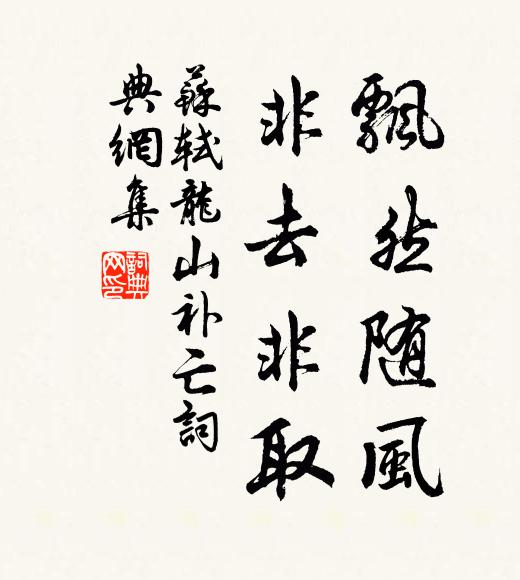 飄然随風
非去非取
蘇軾龍山补亡詞
典網集
詞典
网印